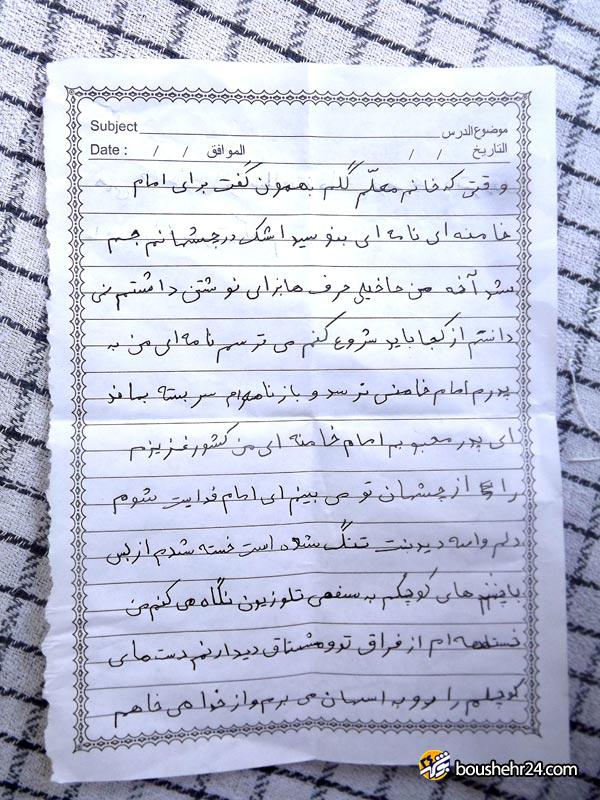 Subject موضوع الدرس
Date : / / الموافق / / التاريخ
وقتی که خانم معلّم گلم بهمون گفت برای امام
خامنه ای نامه ای بنویسید اشک در چشمانم جم
شد آخه من خاخیلی حرف ها برای نوشتن داشتم نمی
دانستم از کجا باید شروع کنم می ترسم نامه ای من به
پدرم امام خامنی نرسد و باز نامه ام سر بسته بماند
ای پدر محبوبم امام خامنه ای من کشور عزیزم
را از چشمان تو می بینم ای امام فدایت شوم
دلم واسه دیدنت تنگ شده است خسته شدم از بس
با چشم های کوچکم به صفحی تلوزیون نگاه می کنم من
خسته ام از فراق تو و مشتاق دیدارنم دست های
کوچکم را رو به اسمان می برم و از خدا می خاهم
boushehr24.com